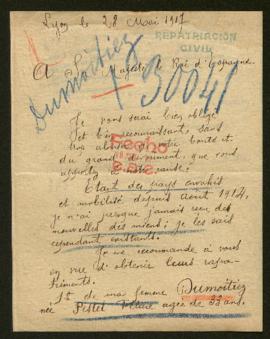 Lyon le 28 Mai 1917
REPATRIACION
CIVIL
A Sa Majesté le Roi d'Espagne.
Dumoitiez
30041
Je vous serai bien obligé
et bien reconnaissant, sans
trop abuser de votre bonté et
du grand dévouement, que vous
apportez à notre cause.
Fecho
Étant des pays envahis
et mobilisé depuis Août 1914,
je n'ai presque jamais reçu de
nouvelles des miens; je les sais
cependant existants.
Je me recommande à vous
en vue d'obtenir leurs rapa-
triements.
1° de ma femme Dumoitiez
née Pistel agée de 33 ans.